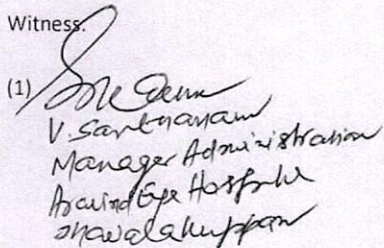 Witness.
(1)
V. Santhanam
Manager Administration
Aravind Eye Hospital
Thavalakuppam